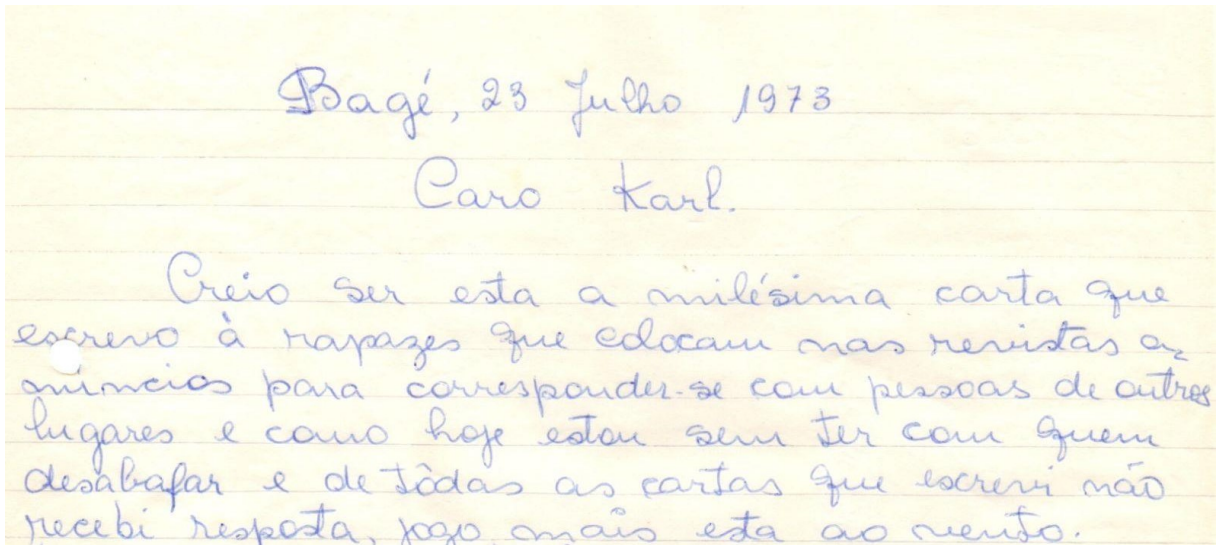 Bagé, 23 Julho 1973
Caro Karl.
Creio ser esta a milésima carta que
escrevo à rapazes que colocam nas revistas a-
núncios para corresponder-se com pessoas de outros
lugares e como hoje estou sem ter com quem
desabafar e de tôdas as cartas que escrevi não
recebi resposta, jogo mais esta ao vento.